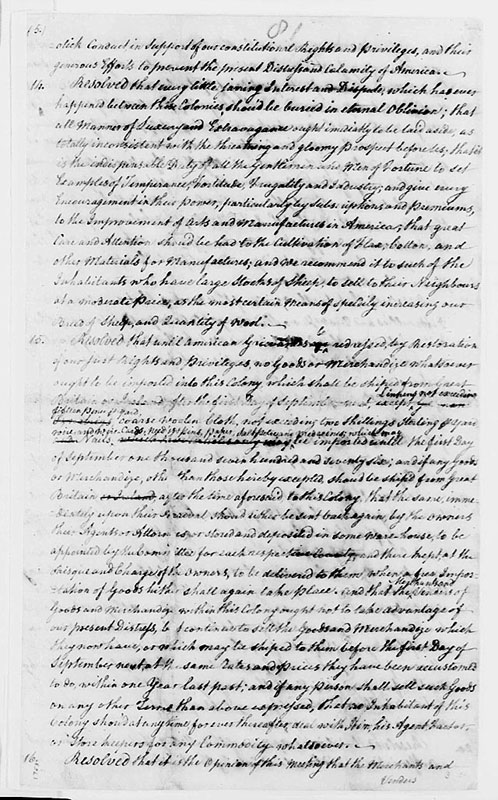 (5.)
8
otick Conduct in Support of our constitutional Rights and Privileges, and their
generous Efforts to prevent the present Distress and Calamity of America
14. Resolved that every little jaring Interest and Dispute, which has ever
happened between these Colonies, should be buried in eternal Oblivion; that
all Manner of Luxury and Extravagance ought imediately to be laid aside, as
totally inconsistent with the threatning and gloomy Prospect before us; that it
is the indispensable Duty of all the Gentlemen and Men of Fortune to set
Examples of Temperance, Fortitude, Frugality and Industry; and give every
Encouragement in their power, particularly by Subscriptions and Premiums,
to the Improvement of Arts and Manufactures in America; that great
Care and Attention should be had to the Cultivation of Flax, Cotton, and
other Materials for Manufactures; and we recommend it to such of the
Inhabitants who have large Stocks of Sheep, to sell to their Neighbours
at a moderate Price, as the most certain Means of speedily increasing our
Breed of Sheep, and Quantity of Wool.
15. Resolved that until American Grievances redressed, by Restoration
of our just Rights and Privileges, no Goods or Merchandize whatsoever
ought to be imported into this Colony, which shall be shiped from Great
Britain or Ireland after the first Day of September next except Linnens not exceeding
fifteen pence yard,
coarse woolen Cloth, not exceeding two Shillings Sterling yard
Nails, be imported until the first Day
of September one thousand seven hundred and seventy six; and if any goods
or Merchandize, other than those hereby excepted should be shiped from Great
Britain after the time aforesaid to this Colony, that the same, imme-
diately upon their Arrival should either be sent back again, by the Owners
their Agents or Attorn or stored and deposited in some Warehouse, to be
appointed by the Committee for each respective and there kept at the
risque and Charge of the Owners, to be delivered to them when a free Impor-
tation of Goods hither shall again take Place: and that the Venders of
Goods and Merchandize within this Colony ought not to take advantage of
our present Distress, but continue to sell the Goods and Merchandize which
they now have, or which may be shiped to them before the first Day of
September next at the same Rates and Prices they have been accustomed
to do, within one Year last past; and if any Person shall sell such Goods
on any other Terms than above expressed, that no Inhabitant of this
Colony should at any time, for ever thereafter, deal with Him, his Agent, Factor,
or Store keepers for any Commodity whatsoever.
16. Resolved that it is the Opinion of this meeting that the Merchants and
Venders